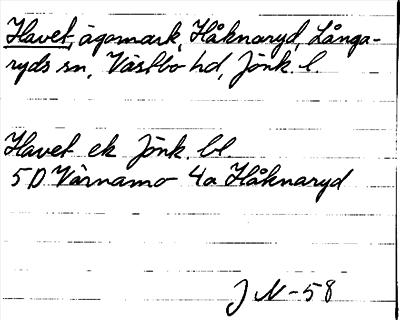 Havet, ägomark, Håknaryd, Långa-
ryds sn, Västbo hd, Jönk. l.
Havet ek Jönk. bl.
5D Värnamo 4a Håknaryd
J N-58